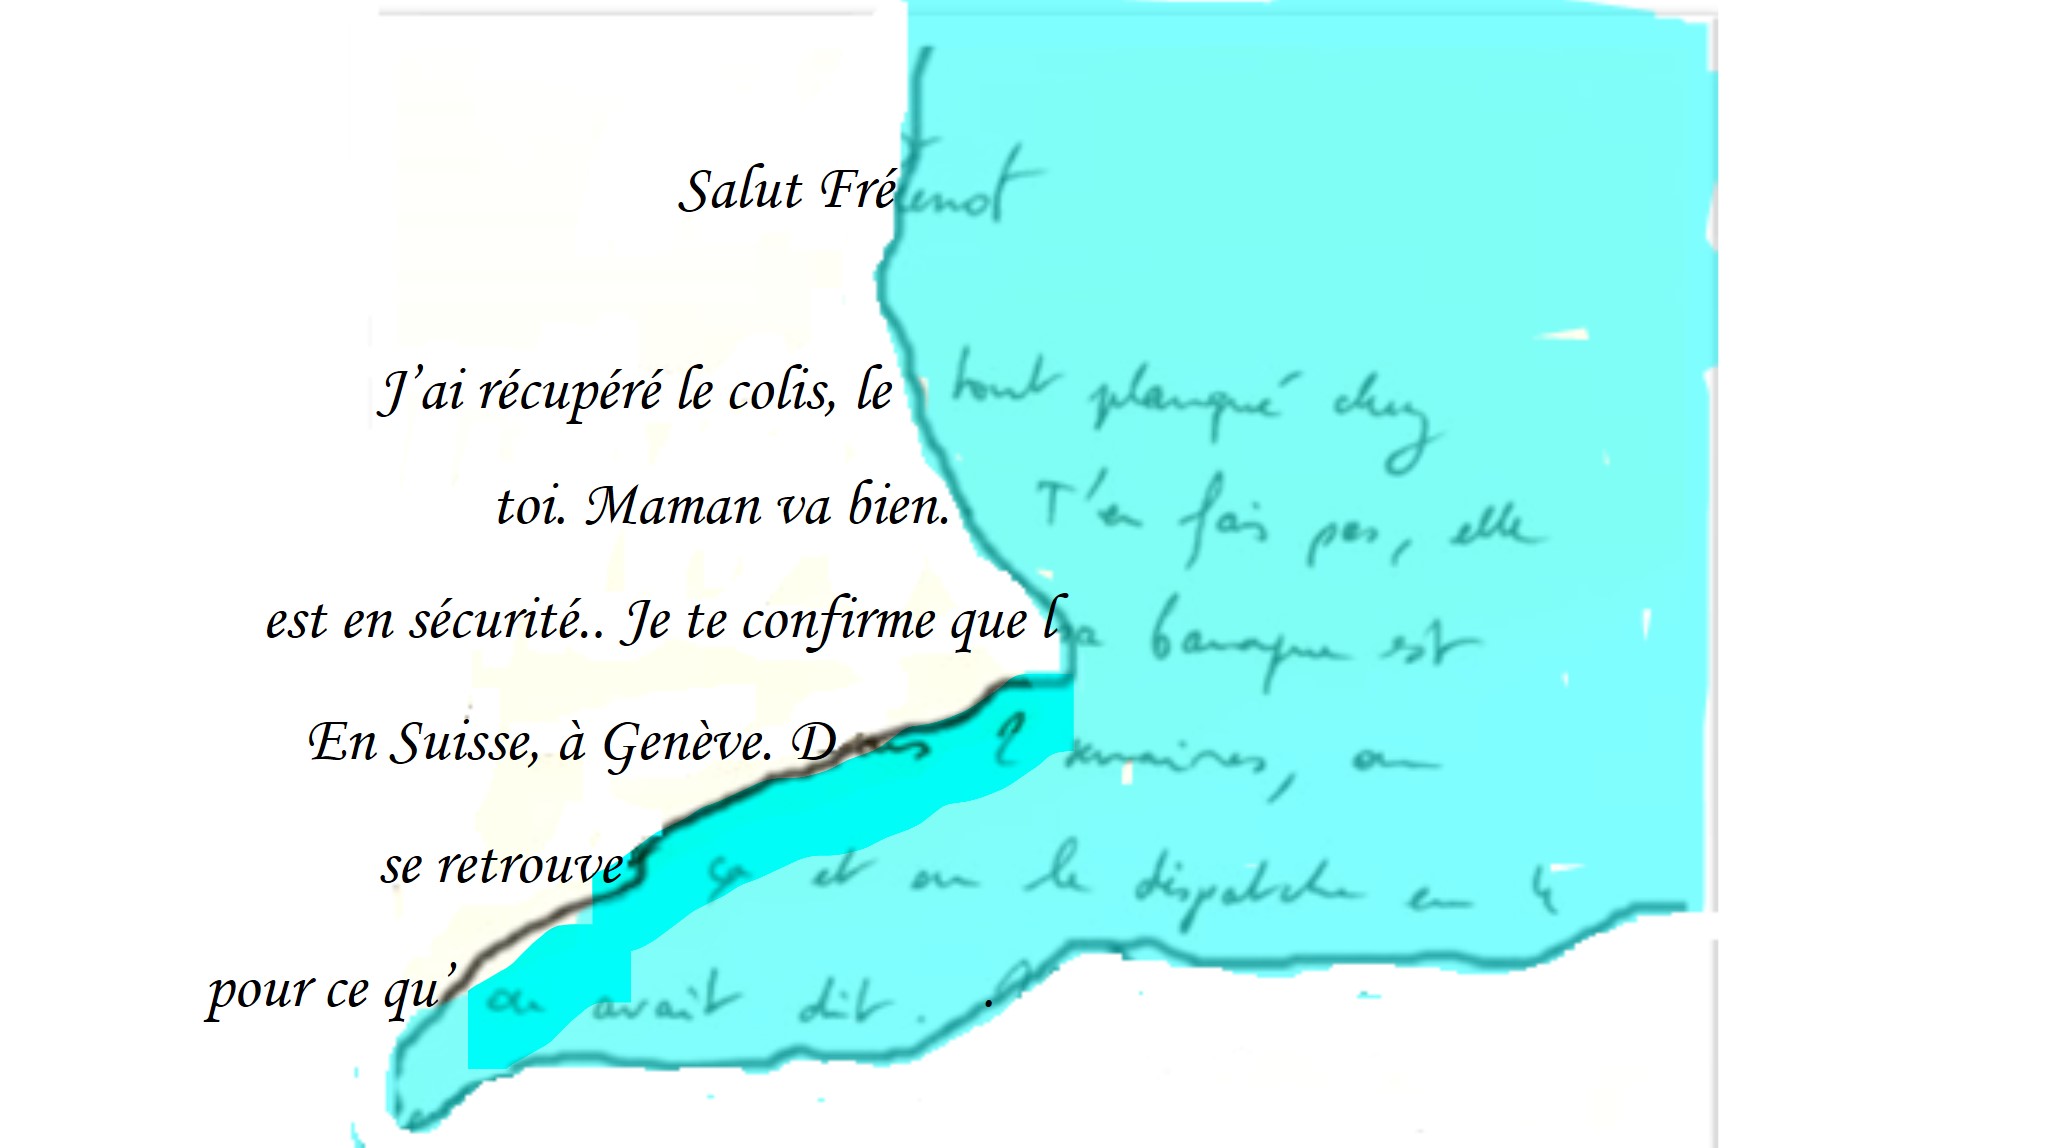 Salut Frérot
J'ai récupéré le colis, le tout planqué chez
toi. Maman va bien. T'en fais pas, elle
est en sécurité.. Je te confirme que la banque est
En Suisse, à Genève. Dans 2 semaines, on
se retrouve et on le dispatche en 4
pour ce qu' on avait dit. .